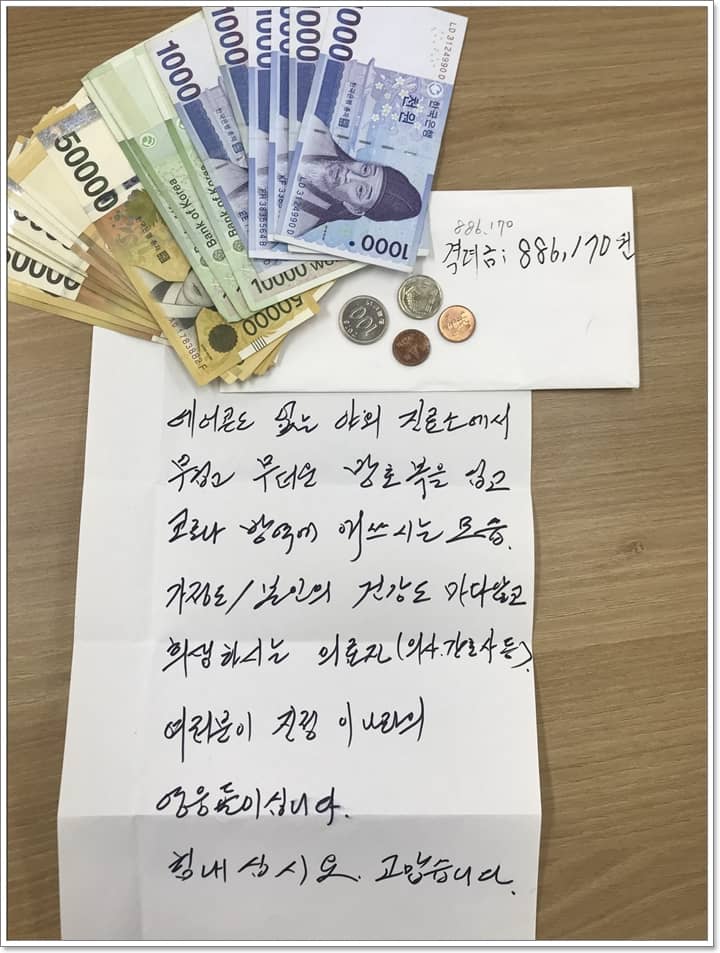 1000
000
000
000
000
LD 3124990 D
한국은행
천원
50000
50000
Bank of Korea
Bank of Korea
LD 3124990 D
1000
10000 won
50000
100
886.170
격려금: 886,170원
에어콘도 없는 야외 진료소에서
무겁고 무더운 방호복을 입고
코로나 방역에 애쓰시는 모습.
가정도/본인의 건강도 마다않고
희생하시는 의료진(의사.간호사 등).
여러분이 진정 이나라의
영웅들이십니다.
힘내십시요. 고맙습니다.